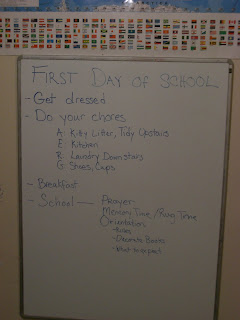 FIRST DAY OF SCHOOL
- Get dressed
- Do your chores
A: Kitty Litter, Tidy Upstairs
E: Kitchen
R: Laundry Downstairs
G: Shoes, Cups
- Breakfast
- School — Prayer
Memory Time / Time
Orientation
- Rules
- Decorate Books
- What to expect